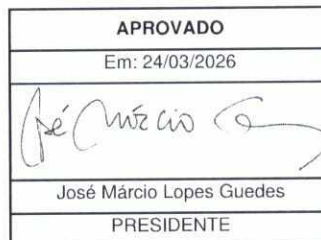 APROVADO
Em: 24/03/2026
José Márcio
José Márcio Lopes Guedes
PRESIDENTE